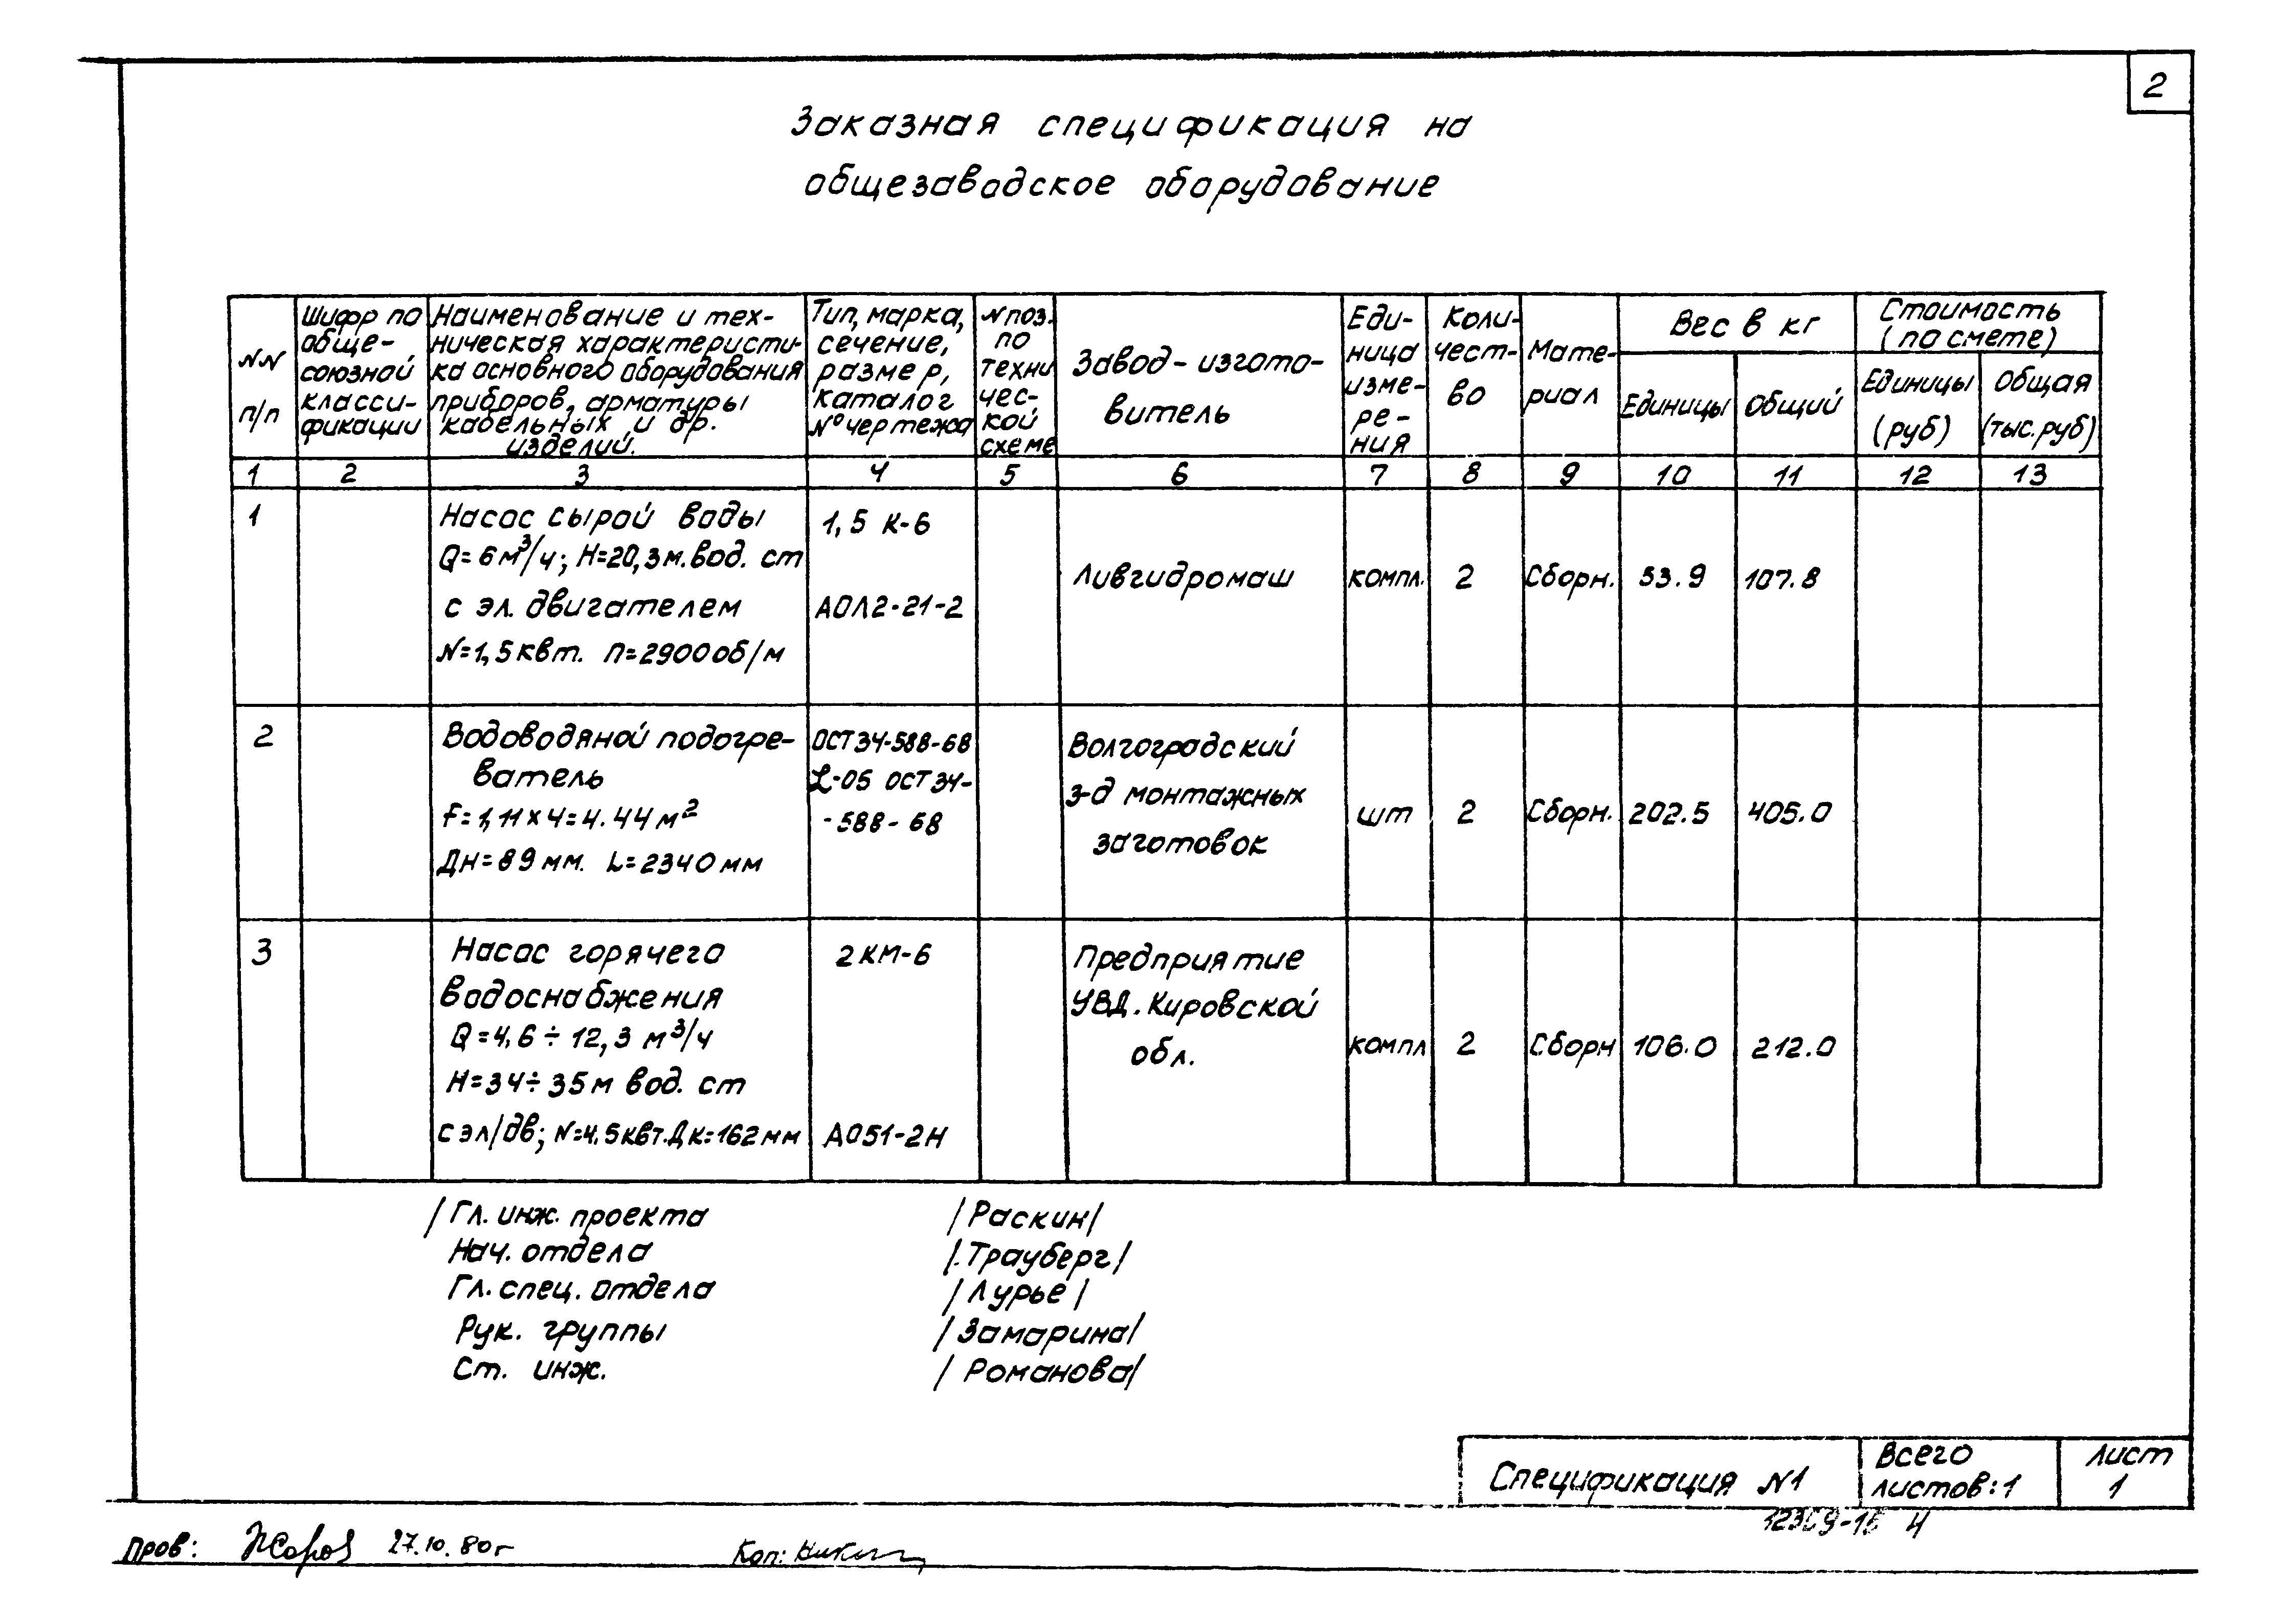 2
Заказная спецификация на
общезаводское оборудование
NN п/п
Шифр по обще- союзной класси- фикации
Наименование и тех- ническая характеристи- ка основного оборудования приборов, арматуры кабельных и др. изделий.
Тип, марка, сечение, размер, каталог N° чертежа
N поз. по техни чес- кой схеме
Завод-изгото- витель
Еди- ница изме- ре- ния
Коли- чест- во
Мате- риал
Вес в кг
Единицы
Общий
Стоимость (по смете)
Единицы (руб)
Общая (тыс. руб)
1 2 3 4 5 6 7 8 9 10 11 12 13
1
Насос сырой воды
Q=6м³/ч; H=20,3м.вод. ст
с эл. двигателем
N=1,5квт. п=2900об/м
1,5 К-6
АОЛ2-21-2
Ливгидромаш
компл.
2
Сборн.
53.9
107.8
2
Водоводяной подогре-
ватель
F=1,11×4=4.44м²
Дн=89мм. L=2340мм
ОСТ34-588-68
L-05 ОСТ34-
-588-68
Волгоградский
з-д монтажных
заготовок
шт
2
Сборн.
202.5
405.0
3
Насос горячего
водоснабжения
Q=4,6÷12,3 м³/ч
H=34÷35м вод. ст
с эл/дв; N=4,5квт.Дк=162мм
2КМ-6
АО51-2Н
Предприятие
УВД. Кировской
обл.
компл
2
Сборн
106.0
212.0
/Гл. инж. проекта /Раскин/
Нач. отдела /.Трауберг/
Гл. спец. отдела /Лурье/
Рук. группы /Замарина/
Ст. инж. /Романова/
Спецификация N1
Всего
листов: 1
Лист
1
4
Пров: 27.10.80г
Коп: